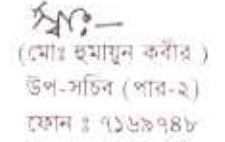 স্বাঃ—
(মোঃ হুমায়ুন কবীর )
উপ-সচিব (পার-২)
ফোন ঃ ৭১৬৯৭৪৮